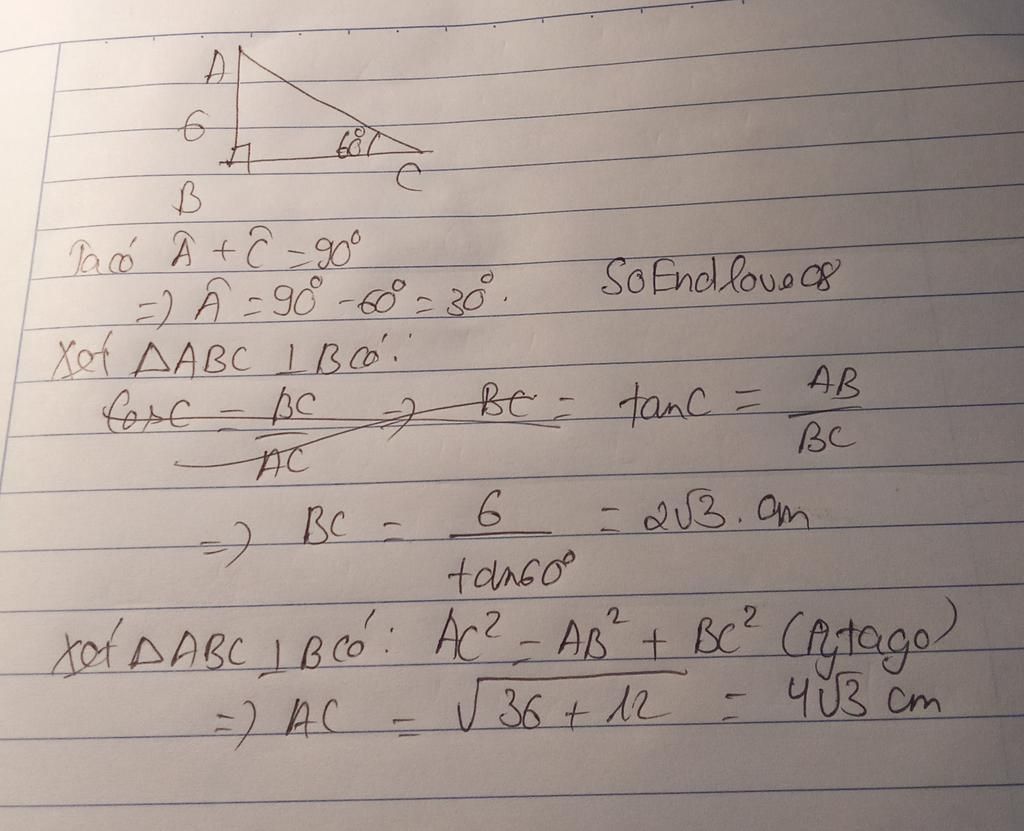 A
6
60°
B
C
Ta có Â + Ĉ = 90°
=) Â = 90° - 60° = 30°.
SoEndlove08
Xét △ABC ⊥ B có:
cosC = BC/AC => BC = tanC = AB/BC
=) BC = 6/tan60° = 2√3. cm
Xét △ABC ⊥ B có: AC² = AB² + BC² (Pytago)
=) AC = √36 + 12 = 4√3 cm